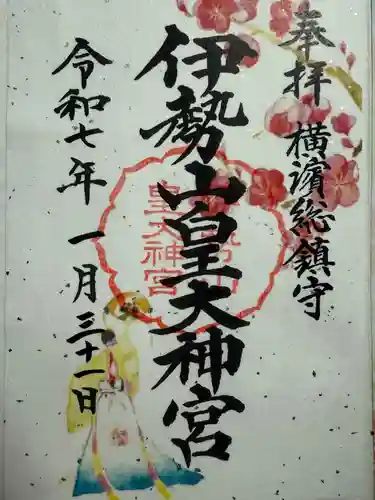 奉拝 横濱総鎮守
伊勢山皇大神宮
伊勢山
皇大神宮
令和七年 一月三十一日